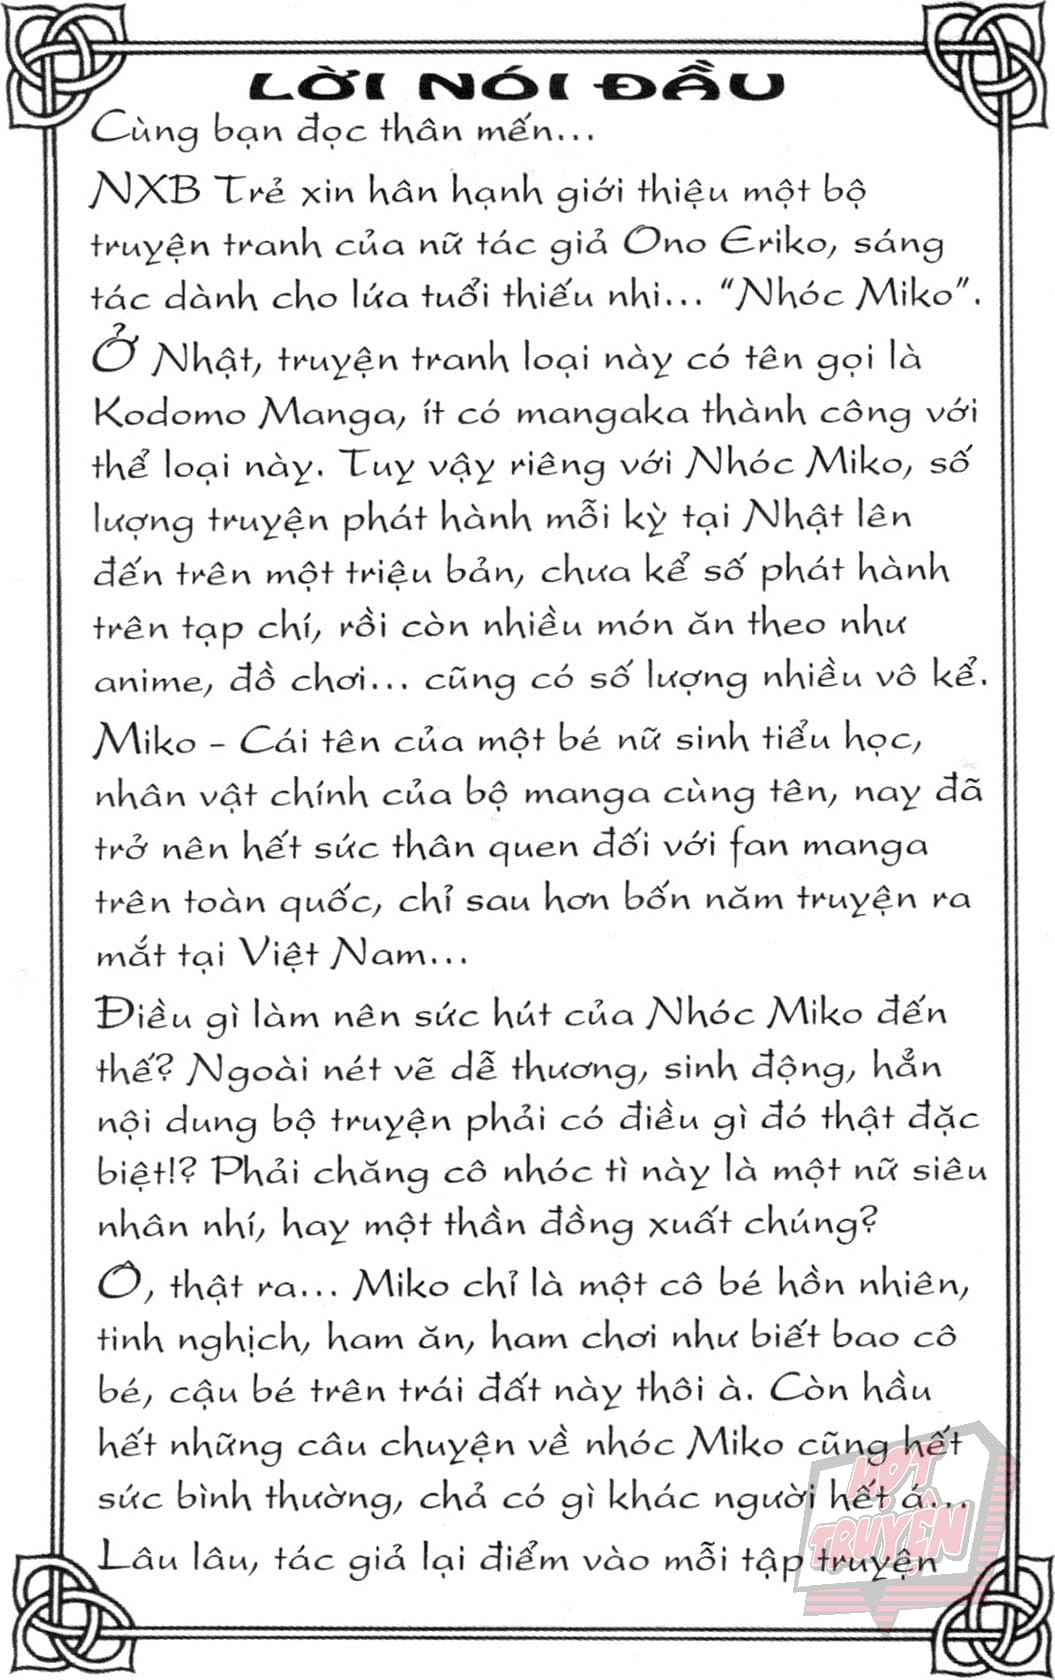 LỜI NÓI ĐẦU
Cùng bạn đọc thân mến...
NXB Trẻ xin hân hạnh giới thiệu một bộ
truyện tranh của nữ tác giả Ono Eriko, sáng
tác dành cho lứa tuổi thiếu nhi... “Nhóc Miko”.
Ở Nhật, truyện tranh loại này có tên gọi là
Kodomo Manga, ít có mangaka thành công với
thể loại này. Tuy vậy riêng với Nhóc Miko, số
lượng truyện phát hành mỗi kỳ tại Nhật lên
đến trên một triệu bản, chưa kể số phát hành
trên tạp chí, rồi còn nhiều món ăn theo như
anime, đồ chơi... cũng có số lượng nhiều vô kể.
Miko - Cái tên của một bé nữ sinh tiểu học,
nhân vật chính của bộ manga cùng tên, nay đã
trở nên hết sức thân quen đối với fan manga
trên toàn quốc, chỉ sau hơn bốn năm truyện ra
mắt tại Việt Nam...
Điều gì làm nên sức hút của Nhóc Miko đến
thế? Ngoài nét vẽ dễ thương, sinh động, hẳn
nội dung bộ truyện phải có điều gì đó thật đặc
biệt!? Phải chăng cô nhóc tì này là một nữ siêu
nhân nhí, hay một thần đồng xuất chúng?
Ô, thật ra... Miko chỉ là một cô bé hồn nhiên,
tinh nghịch, ham ăn, ham chơi như biết bao cô
bé, cậu bé trên trái đất này thôi à. Còn hầu
hết những câu chuyện về nhóc Miko cũng hết
sức bình thường, chả có gì khác người hết á...
Lâu lâu, tác giả lại điểm vào mỗi tập truyện
HOT
TRUYỆN